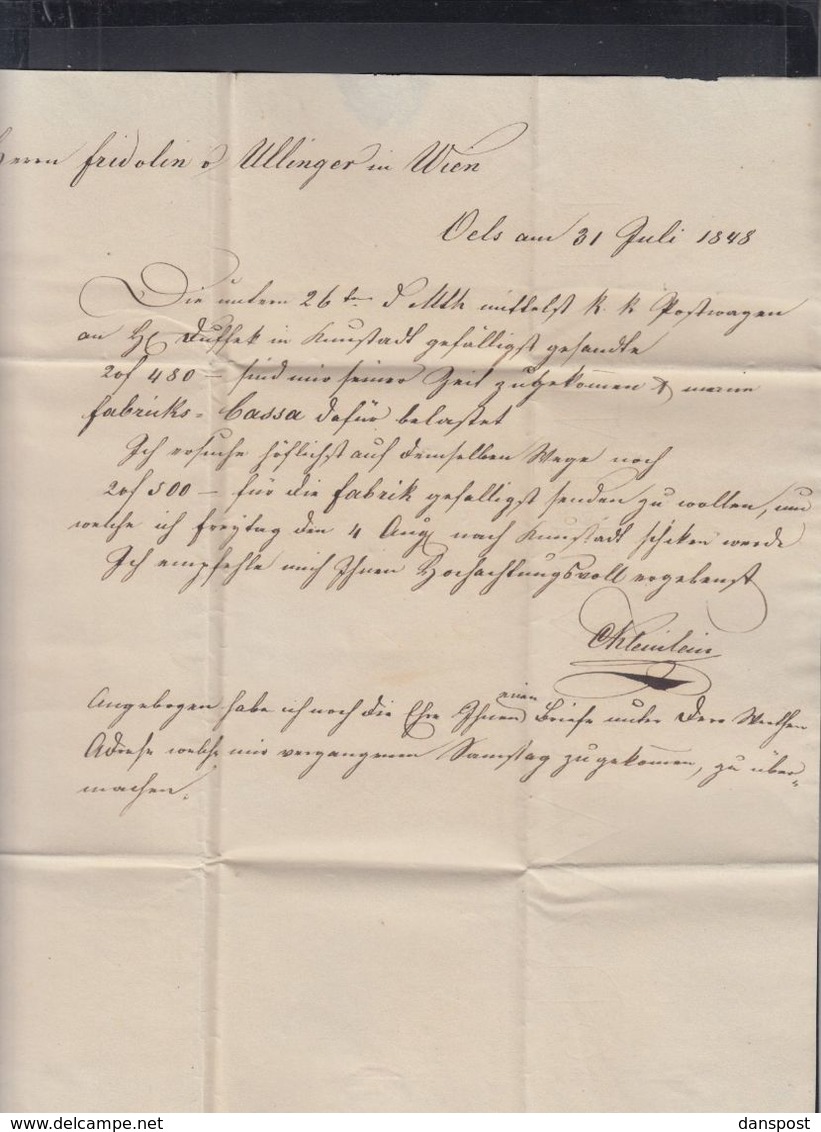 Herrn Fridolin v Ullinger in Wien
Oels am 31 Juli 1848
Die unterm 26 ten d Mth mittelst k. k Postwagen
an H Duffek in Kunstadt gefälligst gesandte
480 – sind mir seiner Zeit zugekommen & meine
Fabricks-Cassa dafür belastet
Ich ersuche höflichst auf demselben Wege noch
500 – für die Fabrik gefälligst senden zu wollen, um
welche ich Freytag den 4 Aug nach Kunstadt schiken werde
Ich empfehle mich Ihnen Hochachtungsvoll ergebenst
Angebogen habe ich noch die Ehre Ihnen einen Briefe unter Dero Werthen
Adresse welche mir vergangenen Samstag zugekommen, zu über-
machen.
danspost